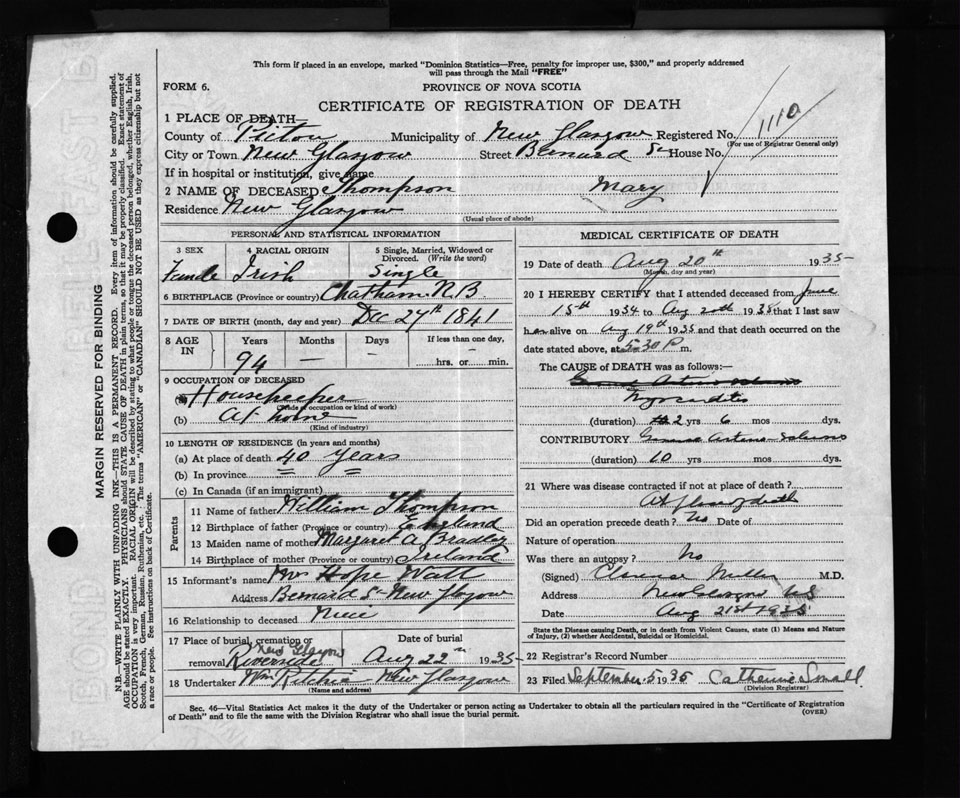 This form if placed in an envelope, marked "Dominion Statistics—Free, penalty for improper use, $300," and properly addressed
will pass through the Mail "FREE"
FORM 6.
PROVINCE OF NOVA SCOTIA
CERTIFICATE OF REGISTRATION OF DEATH
1 PLACE OF DEATH
County of Pictou Municipality of New Glasgow Registered No. 1110
(For use of Registrar General only)
City or Town New Glasgow Street Bernard St House No.
If in hospital or institution, give name
2 NAME OF DECEASED Thompson Mary
Residence New Glasgow
(Usual place of abode)
PERSONAL AND STATISTICAL INFORMATION
3 SEX 4 RACIAL ORIGIN 5 Single, Married, Widowed or
Divorced. (Write the word)
Female Irish Single
6 BIRTHPLACE (Province or country) Chatham N.B.
7 DATE OF BIRTH (month, day and year) Dec 27th 1841
8 AGE IN Years Months Days If less than one day,
94 — — hrs. or min.
9 OCCUPATION OF DECEASED
(a) Housekeeper
(Trade or occupation or kind of work)
(b) At home
(Kind of industry)
10 LENGTH OF RESIDENCE (In years and months)
(a) At place of death 40 years
(b) In province = =
(c) In Canada (if an immigrant)
Parents
11 Name of father William Thompson
12 Birthplace of father (Province or country) England
13 Maiden name of mother Margaret A Bradley
14 Birthplace of mother (Province or country) Ireland
15 Informant's name Mrs Hope Watt
Address Bernard St New Glasgow
16 Relationship to deceased Niece
17 Place of burial, cremation or Date of burial
New Glasgow
removal Riverside Aug 22nd 1935
18 Undertaker Wm Ritchie New Glasgow
(Name and address)
MEDICAL CERTIFICATE OF DEATH
19 Date of death Aug 20th 1935
(Month, day and year)
20 I HEREBY CERTIFY that I attended deceased from June
15th 1934 to Aug 20th 1935 that I last saw
her alive on Aug 19th 1935 and that death occurred on
date stated above, at 5-30 P m.
The CAUSE of DEATH was as follows:—
Myocarditis
(duration) 2 yrs 6 mos dys.
CONTRIBUTORY General Arterio-sclerosis
(duration) 10 yrs mos dys.
21 Where was disease contracted if not at place of death?
At place of death
Did an operation precede death? No Date of
Nature of operation
Was there an autopsy? No
(Signed) Clarence Miller M.D.
Address New Glasgow N.S.
Date Aug 21st 1935
State the Disease causing Death, or in death from Violent Causes, state (1) Means and Nature
of Injury, (2) whether Accidental, Suicidal or Homicidal.
22 Registrar's Record Number
23 Filed September 5 1935 Catherine Small
(Division Registrar)
Sec. 46—Vital Statistics Act makes it the duty of the Undertaker or person acting as Undertaker to obtain all the particulars required in the "Certificate of Registration
of Death" and to file the same with the Division Registrar who shall issue the burial permit. (OVER)
MARGIN RESERVED FOR BINDING
N.B.—WRITE PLAINLY WITH UNFADING INK—THIS IS A PERMANENT RECORD. Every item of information should be carefully supplied.
AGE should be stated EXACTLY. PHYSICIANS should STATE CAUSE OF DEATH in plain terms, so that it may be properly classified. Exact statement of
OCCUPATION is very important. RACIAL ORIGIN will be described by stating to what people or tongue the deceased person belonged, whether English, Irish,
Scotch, French, German, Russian, Ruthenian, etc. The terms "AMERICAN" or "CANADIAN" SHOULD NOT BE USED as they express citizenship but not
a race or people. See instructions on back of Certificate.